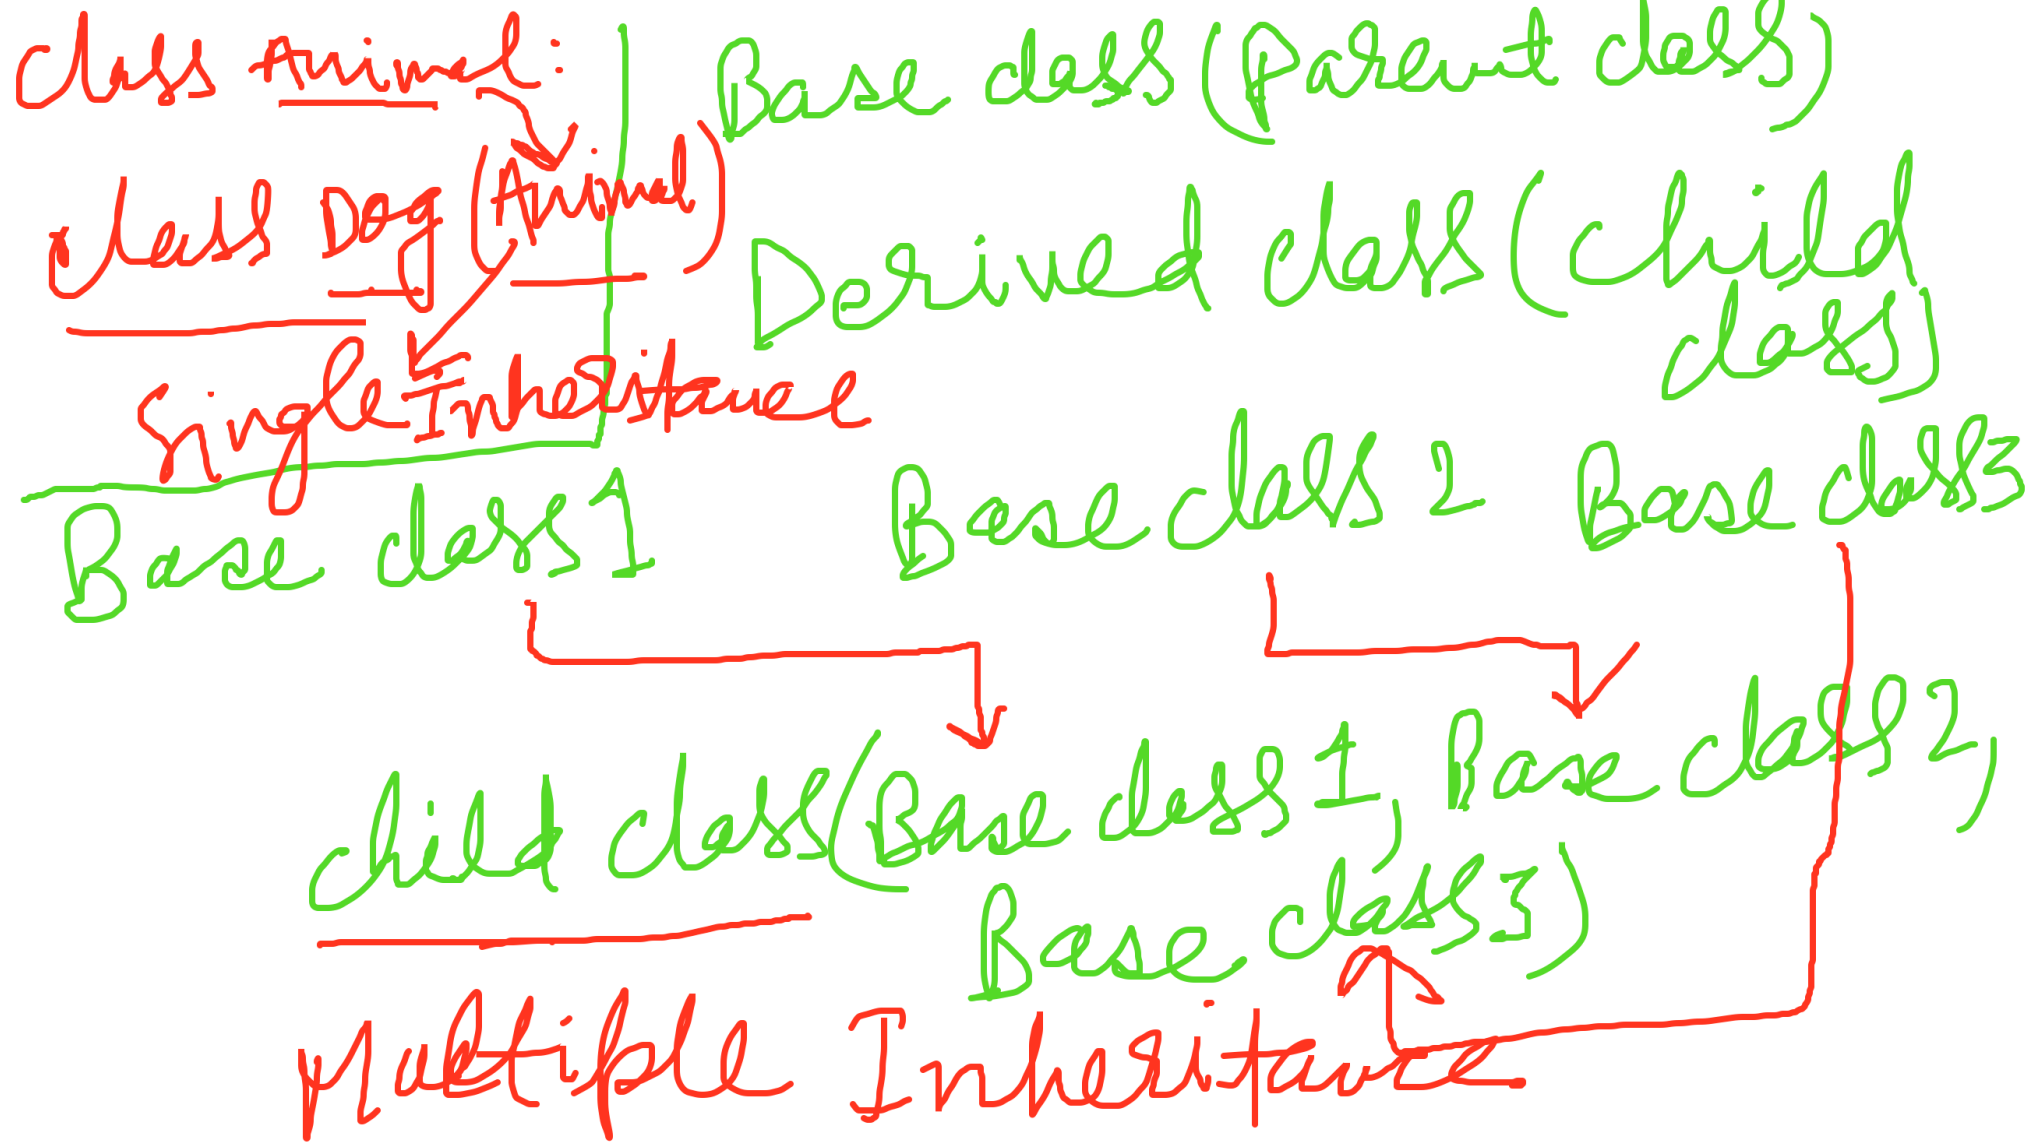 class Animal:
class Dog(Animal)
Single Inheritance
Base class(Parent class)
Derived class(child
class)
Base class 1 Base class 2 Base class3
child class(Base class 1, Base class 2,
Base class3)
Multiple Inheritance